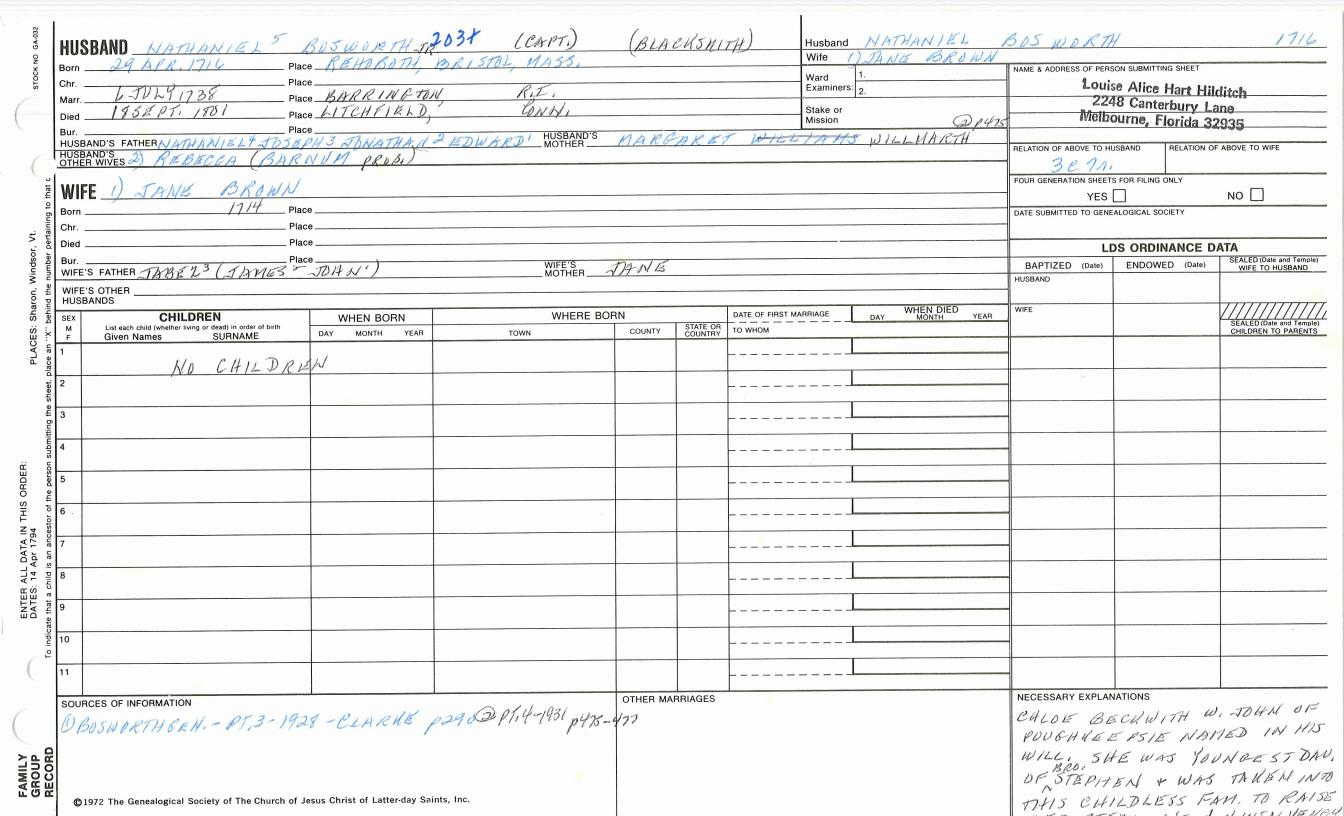 STOCK NO GA-032
HUSBAND NATHANIEL 5 BOSWORTH JR. 203X (CAPT.) (BLACKSMITH)
Born 29 APR. 1716 Place REHOBOTH, BRISTOL, MASS.
Chr. Place
Marr. 6 JULY 1738 Place BARRINGTON R.I.
Died 18 SEPT. 1801 Place LITCHFIELD, CONN.
Bur. Place
HUSBAND'S FATHER NATHANIEL 4 JOSEPH 3 JONATHAN 2 EDWARD 1 HUSBAND'S MOTHER MARGARET WILLIAMS WILLMARTH
HUSBAND'S OTHER WIVES 2) REBECCA (BARNUM PROB.)
Husband NATHANIEL BOSWORTH 1716
Wife 1) JANE BROWN
Ward 1.
Examiners: 2.
Stake or
Mission
② p475
NAME & ADDRESS OF PERSON SUBMITTING SHEET
Louise Alice Hart Hilditch
2248 Canterbury Lane
Melbourne, Florida 32935
RELATION OF ABOVE TO HUSBAND RELATION OF ABOVE TO WIFE
FOUR GENERATION SHEETS FOR FILING ONLY
YES NO
DATE SUBMITTED TO GENEALOGICAL SOCIETY
WIFE 1) JANE BROWN
Born 1714 Place
Chr. Place
Died Place
Bur. Place
WIFE'S FATHER JABEZ 3 (JAMES 2 JOHN 1) WIFE'S MOTHER JANE
WIFE'S OTHER
HUSBANDS
LDS ORDINANCE DATA
BAPTIZED (Date) ENDOWED (Date) SEALED (Date and Temple) WIFE TO HUSBAND
HUSBAND
WIFE
SEALED (Date and Temple) CHILDREN TO PARENTS
SEX M F
CHILDREN
List each child (whether living or dead) in order of birth
Given Names SURNAME
WHEN BORN
DAY MONTH YEAR
WHERE BORN
TOWN COUNTY STATE OR COUNTRY
DATE OF FIRST MARRIAGE
TO WHOM
WHEN DIED
DAY MONTH YEAR
1 NO CHILDREN
2
3
4
5
6
7
8
9
10
11
SOURCES OF INFORMATION
① BOSWORTH GEN. - PT. 3 - 1928 - CLARKE p290 ② PT. 4 - 1931 p475-477
OTHER MARRIAGES
NECESSARY EXPLANATIONS
CHLOE BECKWITH W. JOHN OF
POUGHKEEPSIE NAMED IN HIS
WILL. SHE WAS YOUNGEST DAU.
OF BRO. STEPHEN & WAS TAKEN INTO
THIS CHILDLESS FAM. TO RAISE
©1972 The Genealogical Society of The Church of Jesus Christ of Latter-day Saints, Inc.
PLACES: Sharon, Windsor, Vt.
ENTER ALL DATA IN THIS ORDER:
DATES: 14 Apr 1794
To indicate that a child is an ancestor of the person submitting the sheet, place an "X" behind the number pertaining to that c
FAMILY
GROUP
RECORD